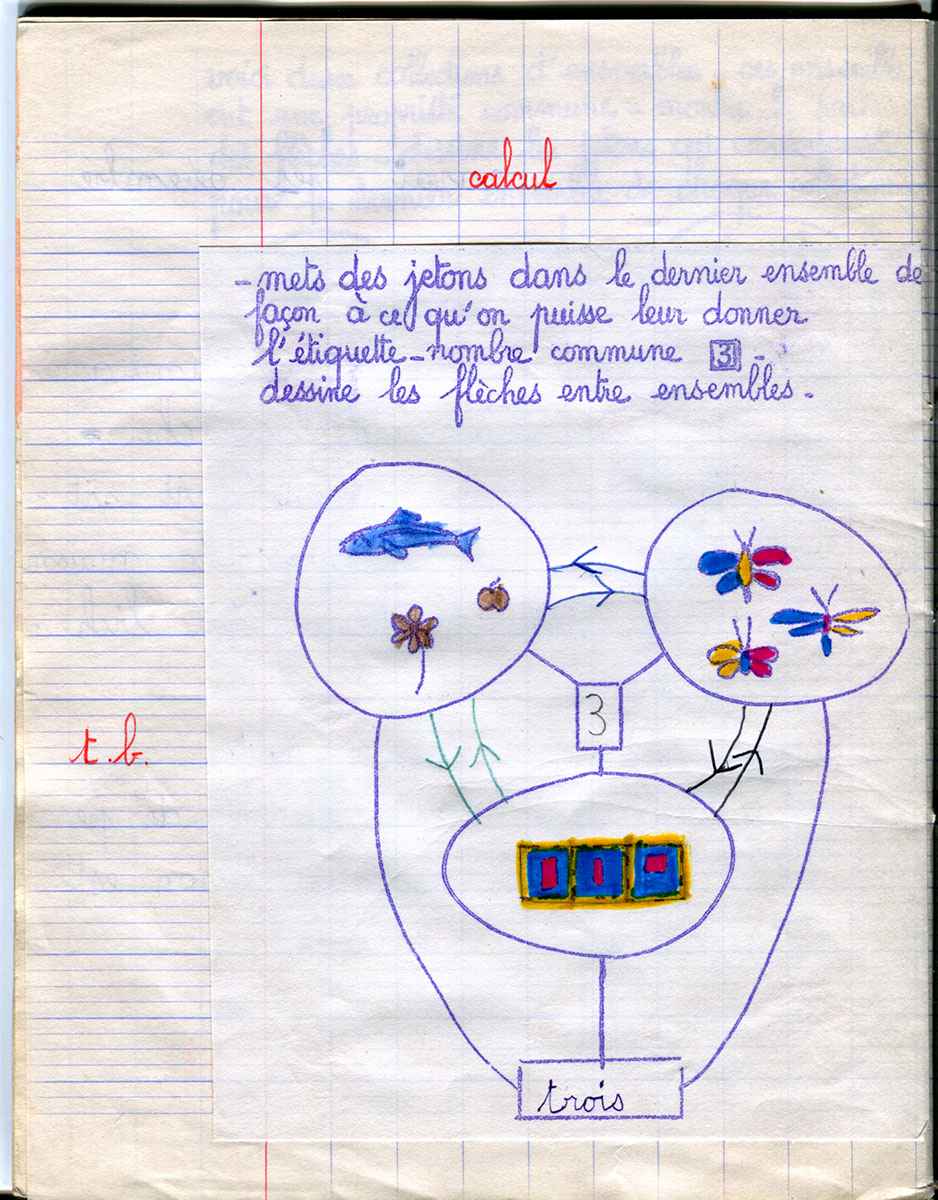 calcul
- mets des jetons dans le dernier ensemble de
façon à ce qu'on puisse leur donner
l'étiquette-nombre commune 3 -
dessine les flèches entre ensembles.
3
t.b.
trois